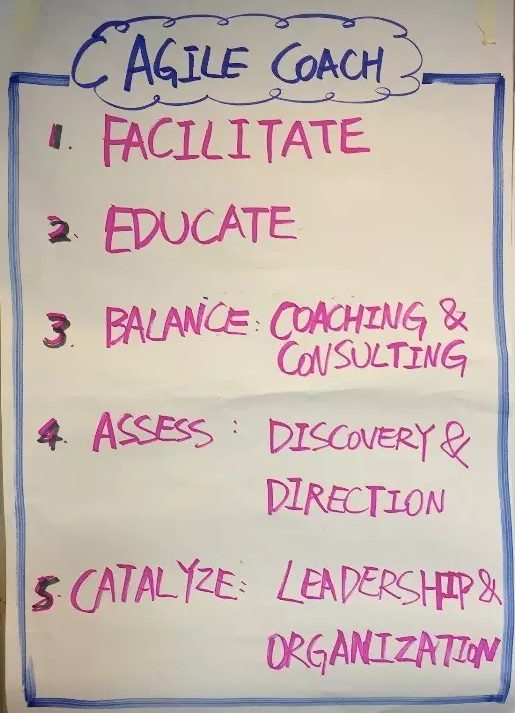 AGILE COACH
1. FACILITATE
2. EDUCATE
3. BALANCE: COACHING &
CONSULTING
4. ASSESS: DISCOVERY &
DIRECTION
5. CATALYZE: LEADERSHIP &
ORGANIZATION